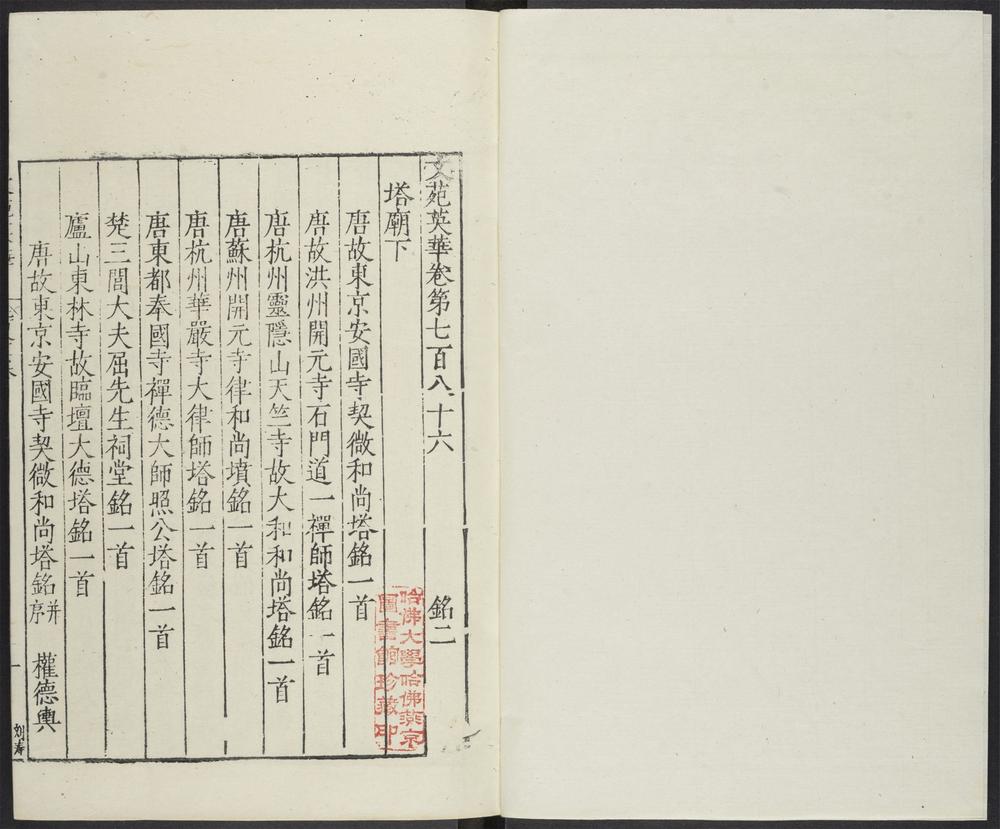 文苑英華卷第七百八十六　銘二
塔廟下
唐故東京安國寺契微和尚塔銘一首
唐故洪州開元寺石門道一禪師塔銘一首
唐杭州靈隱山天竺寺故大和和尚塔銘一首
唐蘇州開元寺律和尚墳銘一首
唐杭州華嚴寺大律師塔銘一首
唐東都奉國寺禪德大師照公塔銘一首
楚三閭大夫屈先生祠堂銘一首
廬山東林寺故臨壇大德塔銘一首
唐故東京安國寺契微和尚塔銘并序　權德輿
一
哈佛大學哈佛燕京
圖書館珍藏印